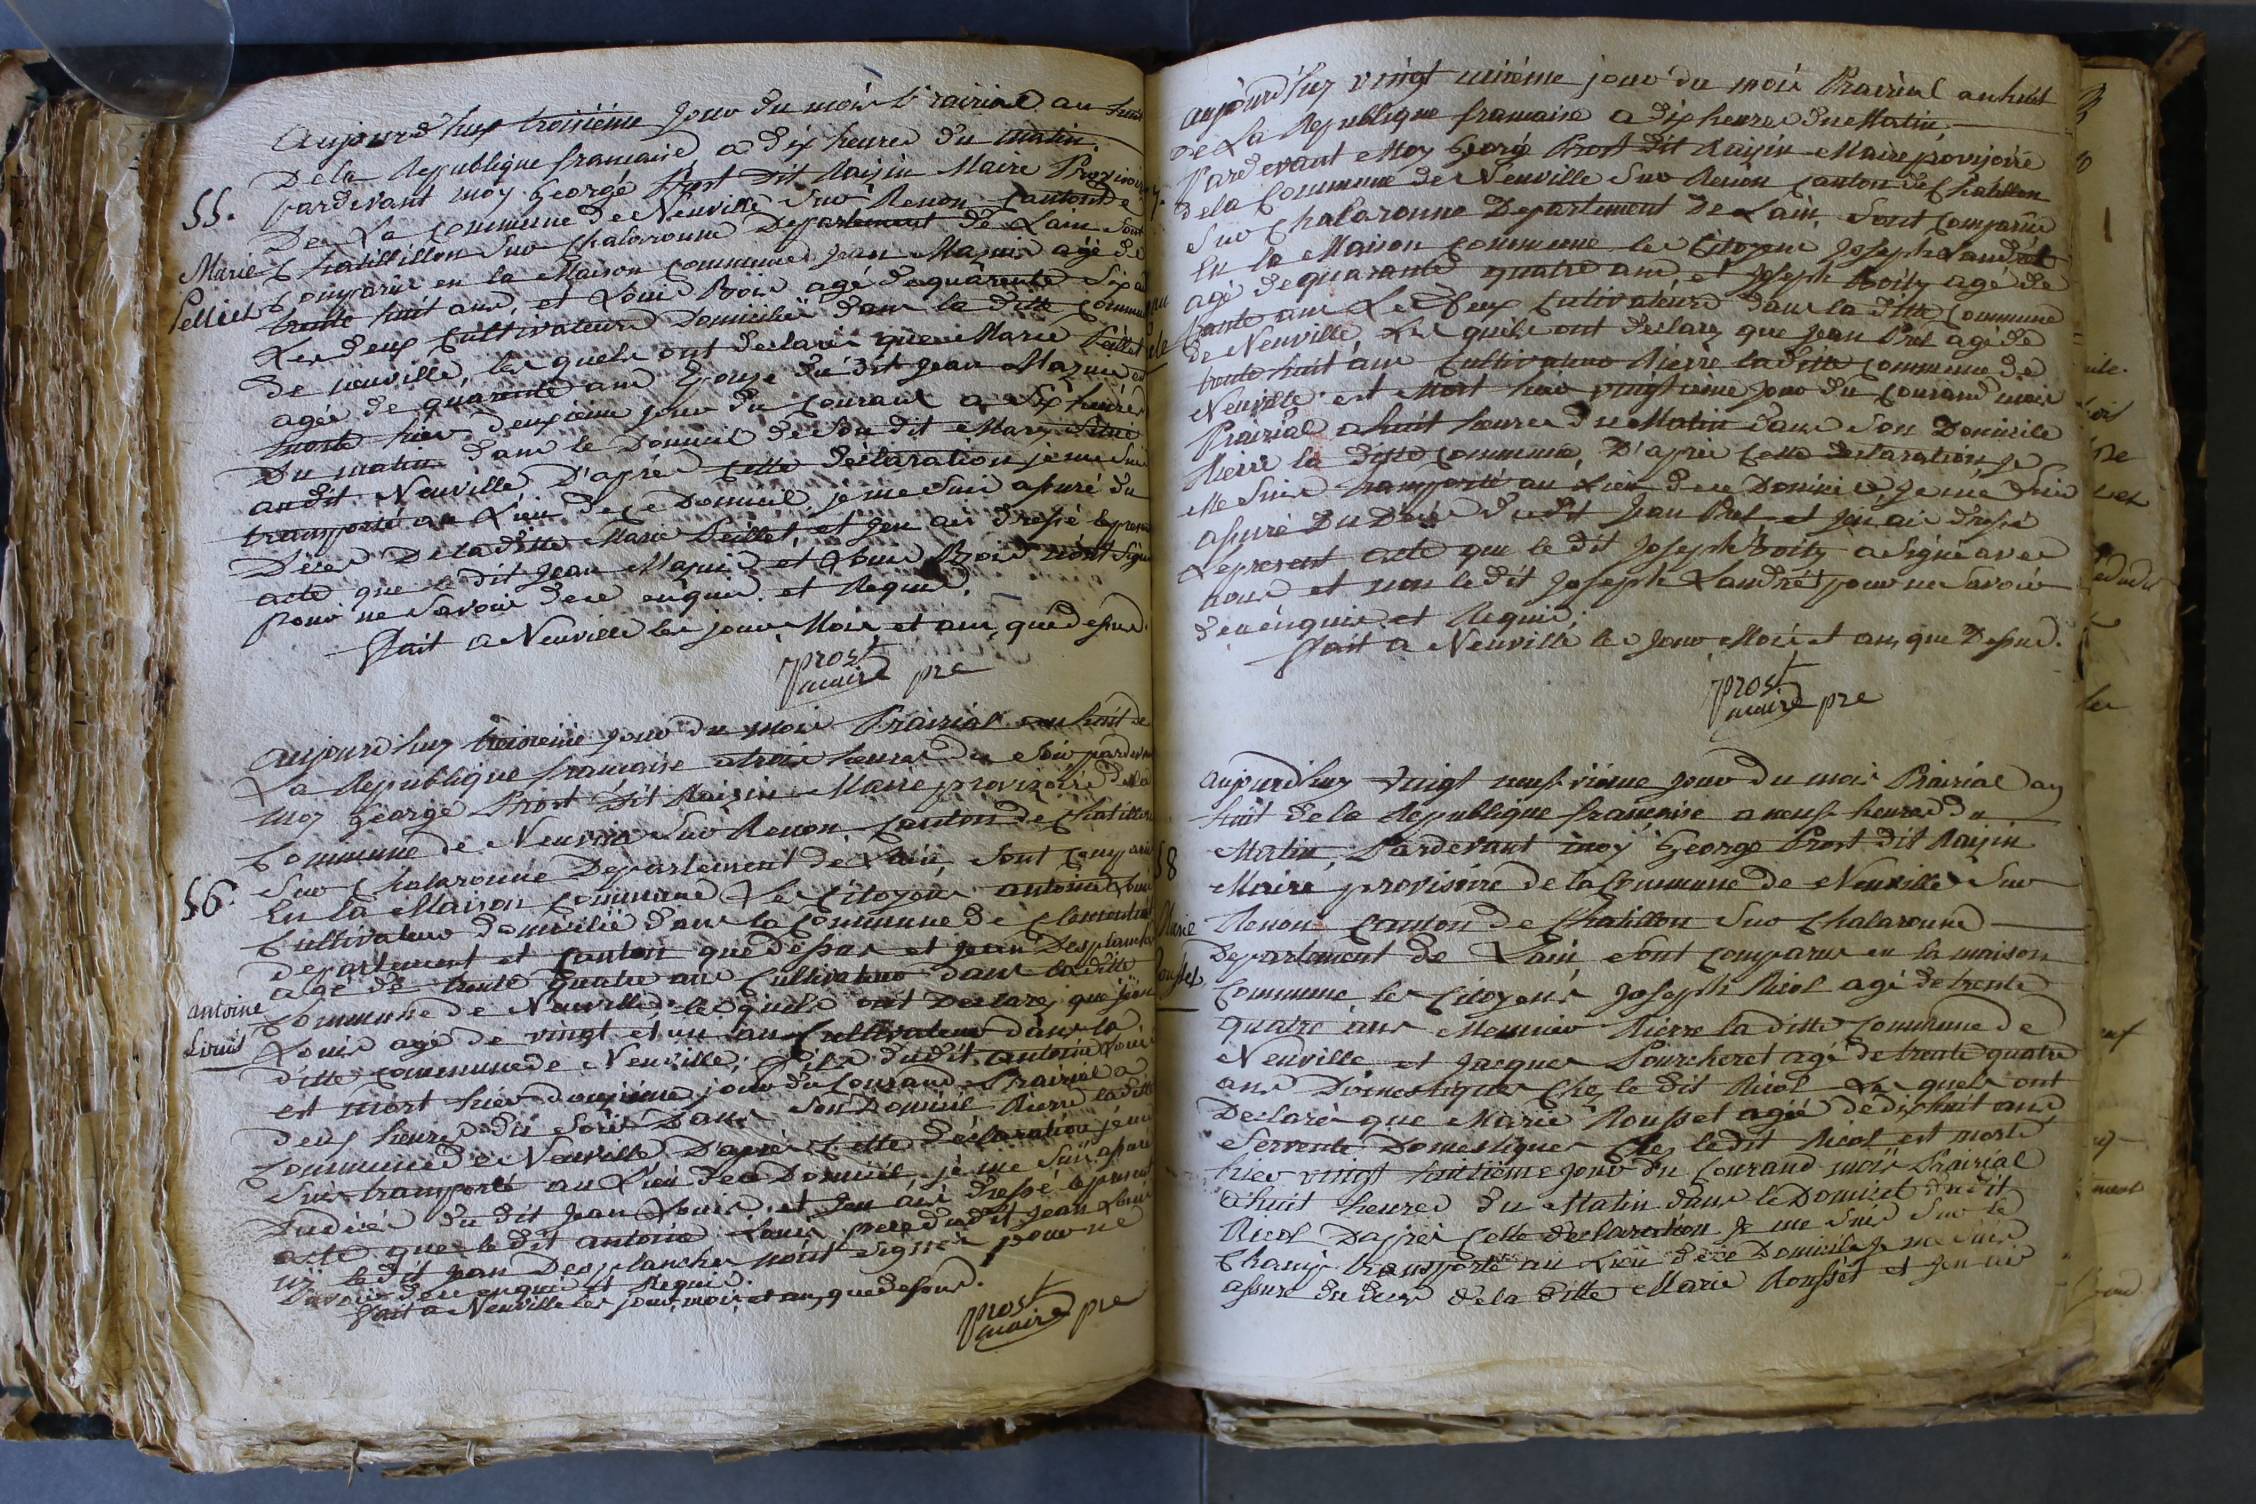 55.
Marie
Pelliet
aujourd'huy troisiéme jour du mois Prairial an huit
De la Republique francaise, a dix heures du matin.
pardevant moy George Prost dit Raisin Maire Provisoire
De La Commune de Neuville Sur Renon Canton de
Chatillon Sur Chalaronne Departement de Lain Sont
Comparus en la Maison Commune Jean agé de
trente huit ans, et Louis Bois agé de quarante Six ans
Les deux Cultivateurs Domiciliés dans la ditte Commune
de neuville, les quels ont declarés que Marie Peillet
agée de quarante ans Epouse du dit Jean est
morte hier deuxiéme jour du Courant a Six heures
Du matin dans le Domicil de Son dit Mary Situé
audit Neuville D'aprés Cette déclaration je me Suis
transporté au Lieu de Ce Domicil, je me Suis assuré du
Décés De la ditte Marie Peillet, et jen ais dressé le present
acte que le dit Jean et Louis Bois n'ont Signé
pour ne Savoir de ce enquis. et Requis.
Fait a Neuville les jour, Mois et an, que dessus.
Prost
maire pre
56.
antoine
Louis
aujourd'huy treisieme jour du mois Prairial an huit de
La Republique francaise a trois heures du Soir pardevant
moy George Prost Dit Raisin Maire provisoire de la
Commune de Neuville Sur Renon Canton de Chatillon
Sur Chalaronne Departement de Lain, Sont Comparus
En la Maison Commune Les Citoyens antoine Louis
Cultivateur domicilié dans la Commune de
departement et Canton que dessus et Jean Desplanches
agé de trente quatre ans Cultivateur dans la ditte
Commune de Neuville, les quels ont Declarés, que jean
Louis agé de vingt et un an Cultivateur dans la
ditte commune de Neuville, fils dudit antoine Louis
est mort hiér douziéme jour du Courand Prairial a
deux heures du Soir Dans Son Domicil Riere la ditte
Commune de Neuville D'apres Cette déclaration je me
Suis transporté au Lieu de ce Domicil, je me Suis assuré
Du décés du dit Jean Louis, et jen ais dressé le present
acte que le dit antoine Louis pere du dit jean Louis
ny le dit jean Desplanches n'ont Signés pour ne
Savoir de ce enquis et Requis.
Fait a Neuville les jour, mois, et an, que dessus.
Prost
maire pre
aujourd'huy vingt uniéme jour du mois Prairial an huit
De La Republique francaise a dix heures du Matin,
Pardevant Moy George Prost dit Raisin Maire provisoire
de la Commune de Neuville Sur Renon Canton de Chatillon
Sur Chalaronne Departement De Lain, Sont Comparus
En la Maison Commune les Citoyens Joseph Landret
agé de quarante quatre ans et Joseph Boity agé de
trante ans Les Deux Cultivateurs dans la ditte Commune
de Neuville, Les quels ont declarés que Jean Bret agé de
trente huit ans Cultivateur Riérre la ditte Commune de
Neuville est Mort hier vingtieme jour du Courand mois
Prairial a huit heures du Matin dans Son Domicile
Riére la ditte Commune, D'aprés Cette declaration, Je
Me Suis transporté au Lieu de ce Domicile, Je me Suis
assuré Du Décés du dit Jean Bret, et Jen ais dressé
Le present acte que le dit Joseph Boity a Signé avec
nous et non le dit Joseph Landret pour ne Savoir
de ce enquis et Requis.
Fait a Neuville les Jour, Mois et an, que Dessus.
Prost
maire pre
58
Marie
Rousset
aujourd'huy vingt neuf viéme jour du mois Prairial an
huit de la République française a neuf heures du
Matin, Pardevant moy George Prost dit Raisin
Maire provisoire de la Commune de Neuville Sur
Renon Canton de Chatillon Sur Chalaronne
Departement de Lain Sont Comparus en la maison
Commune les Citoyens Joseph Nicol agé de trente
quatre ans Meunier Riérre la ditte Commune de
Neuville et Jacques Pourcheret agé de trente quatre
ans Domestique Chez le dit Nicol Les quels ont
Declarés que Marie Rousset agée de dixhuit ans
Servente Domestique Chez le dit Nicol est morte
hier vingt huitiéme jour du Courand mois Prairial
a huit heures du Matin dans le Domicil du dit
Nicol D'aprés Cette declaration Je me Suis Sur le
Champ transporté au Lieu de ce Domicile Je me Suis
assuré du deces de la ditte Marie Rousset et Jen ais